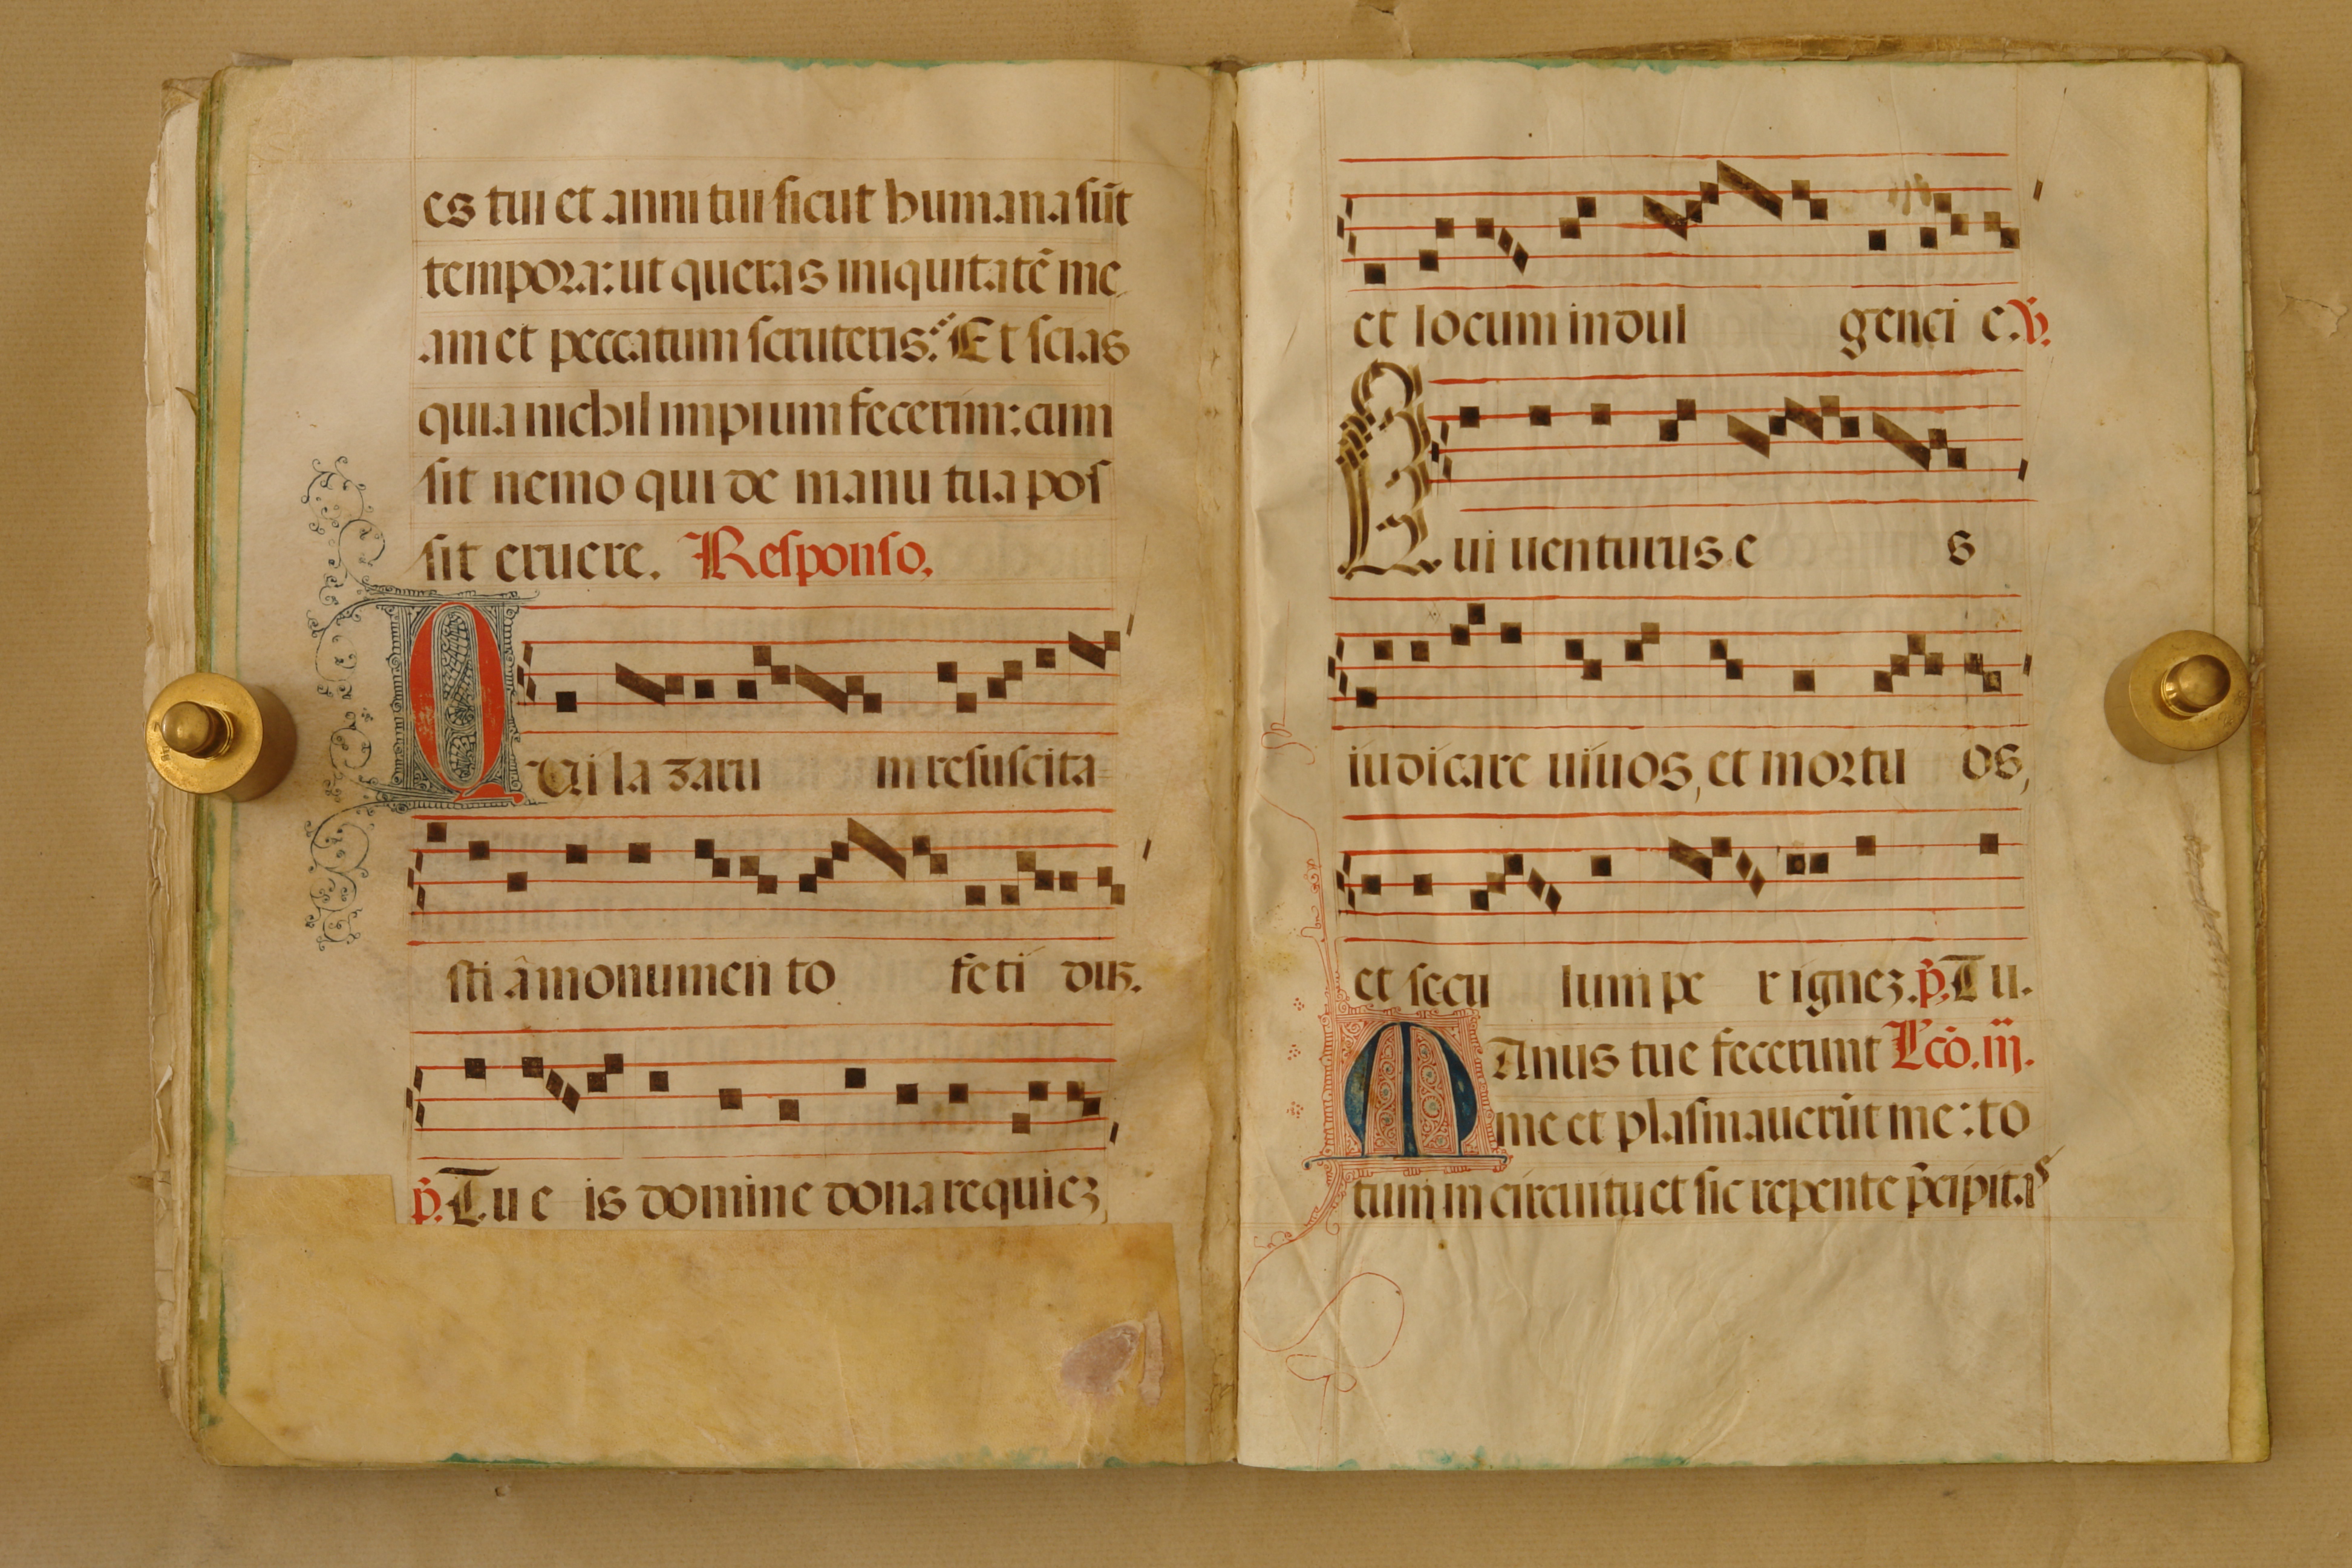 es tui et anni tui sicut humana sūt
tempora: ut queras iniquitatē me
am et peccatum scruteris: Et scias
quia nichil impium fecerim: cum
sit nemo qui de manu tua pos
sit eruere. Responso.
QUi la zaru m resuscita
sti a monumen to feti dus.
p̄. Tu e is domine dona requiez
et locum indul genci e. V.
Qui uenturus e s
iudicare uiuos, et mortu os,
et secu lum pe r ignez. p̄. Tu.
MAnus tue fecerunt Lcō. iij.
me et plasmauerūt me: to
tum in circuitu et sic repente p̄cipitas